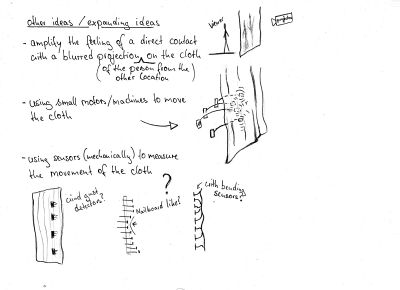 other ideas / expanding ideas
- amplify the feeling of a direct contact
with a blurred projection on the cloth
(of the person from the
other location
Viewer
- using small motors/machines to move
the cloth
- using sensors (mechanically) to measure
the movement of the cloth
?
wind gust
detectors?
nailboard like?
with bending
sensors?